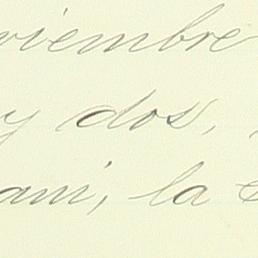 viembre
y dos,
ami, la